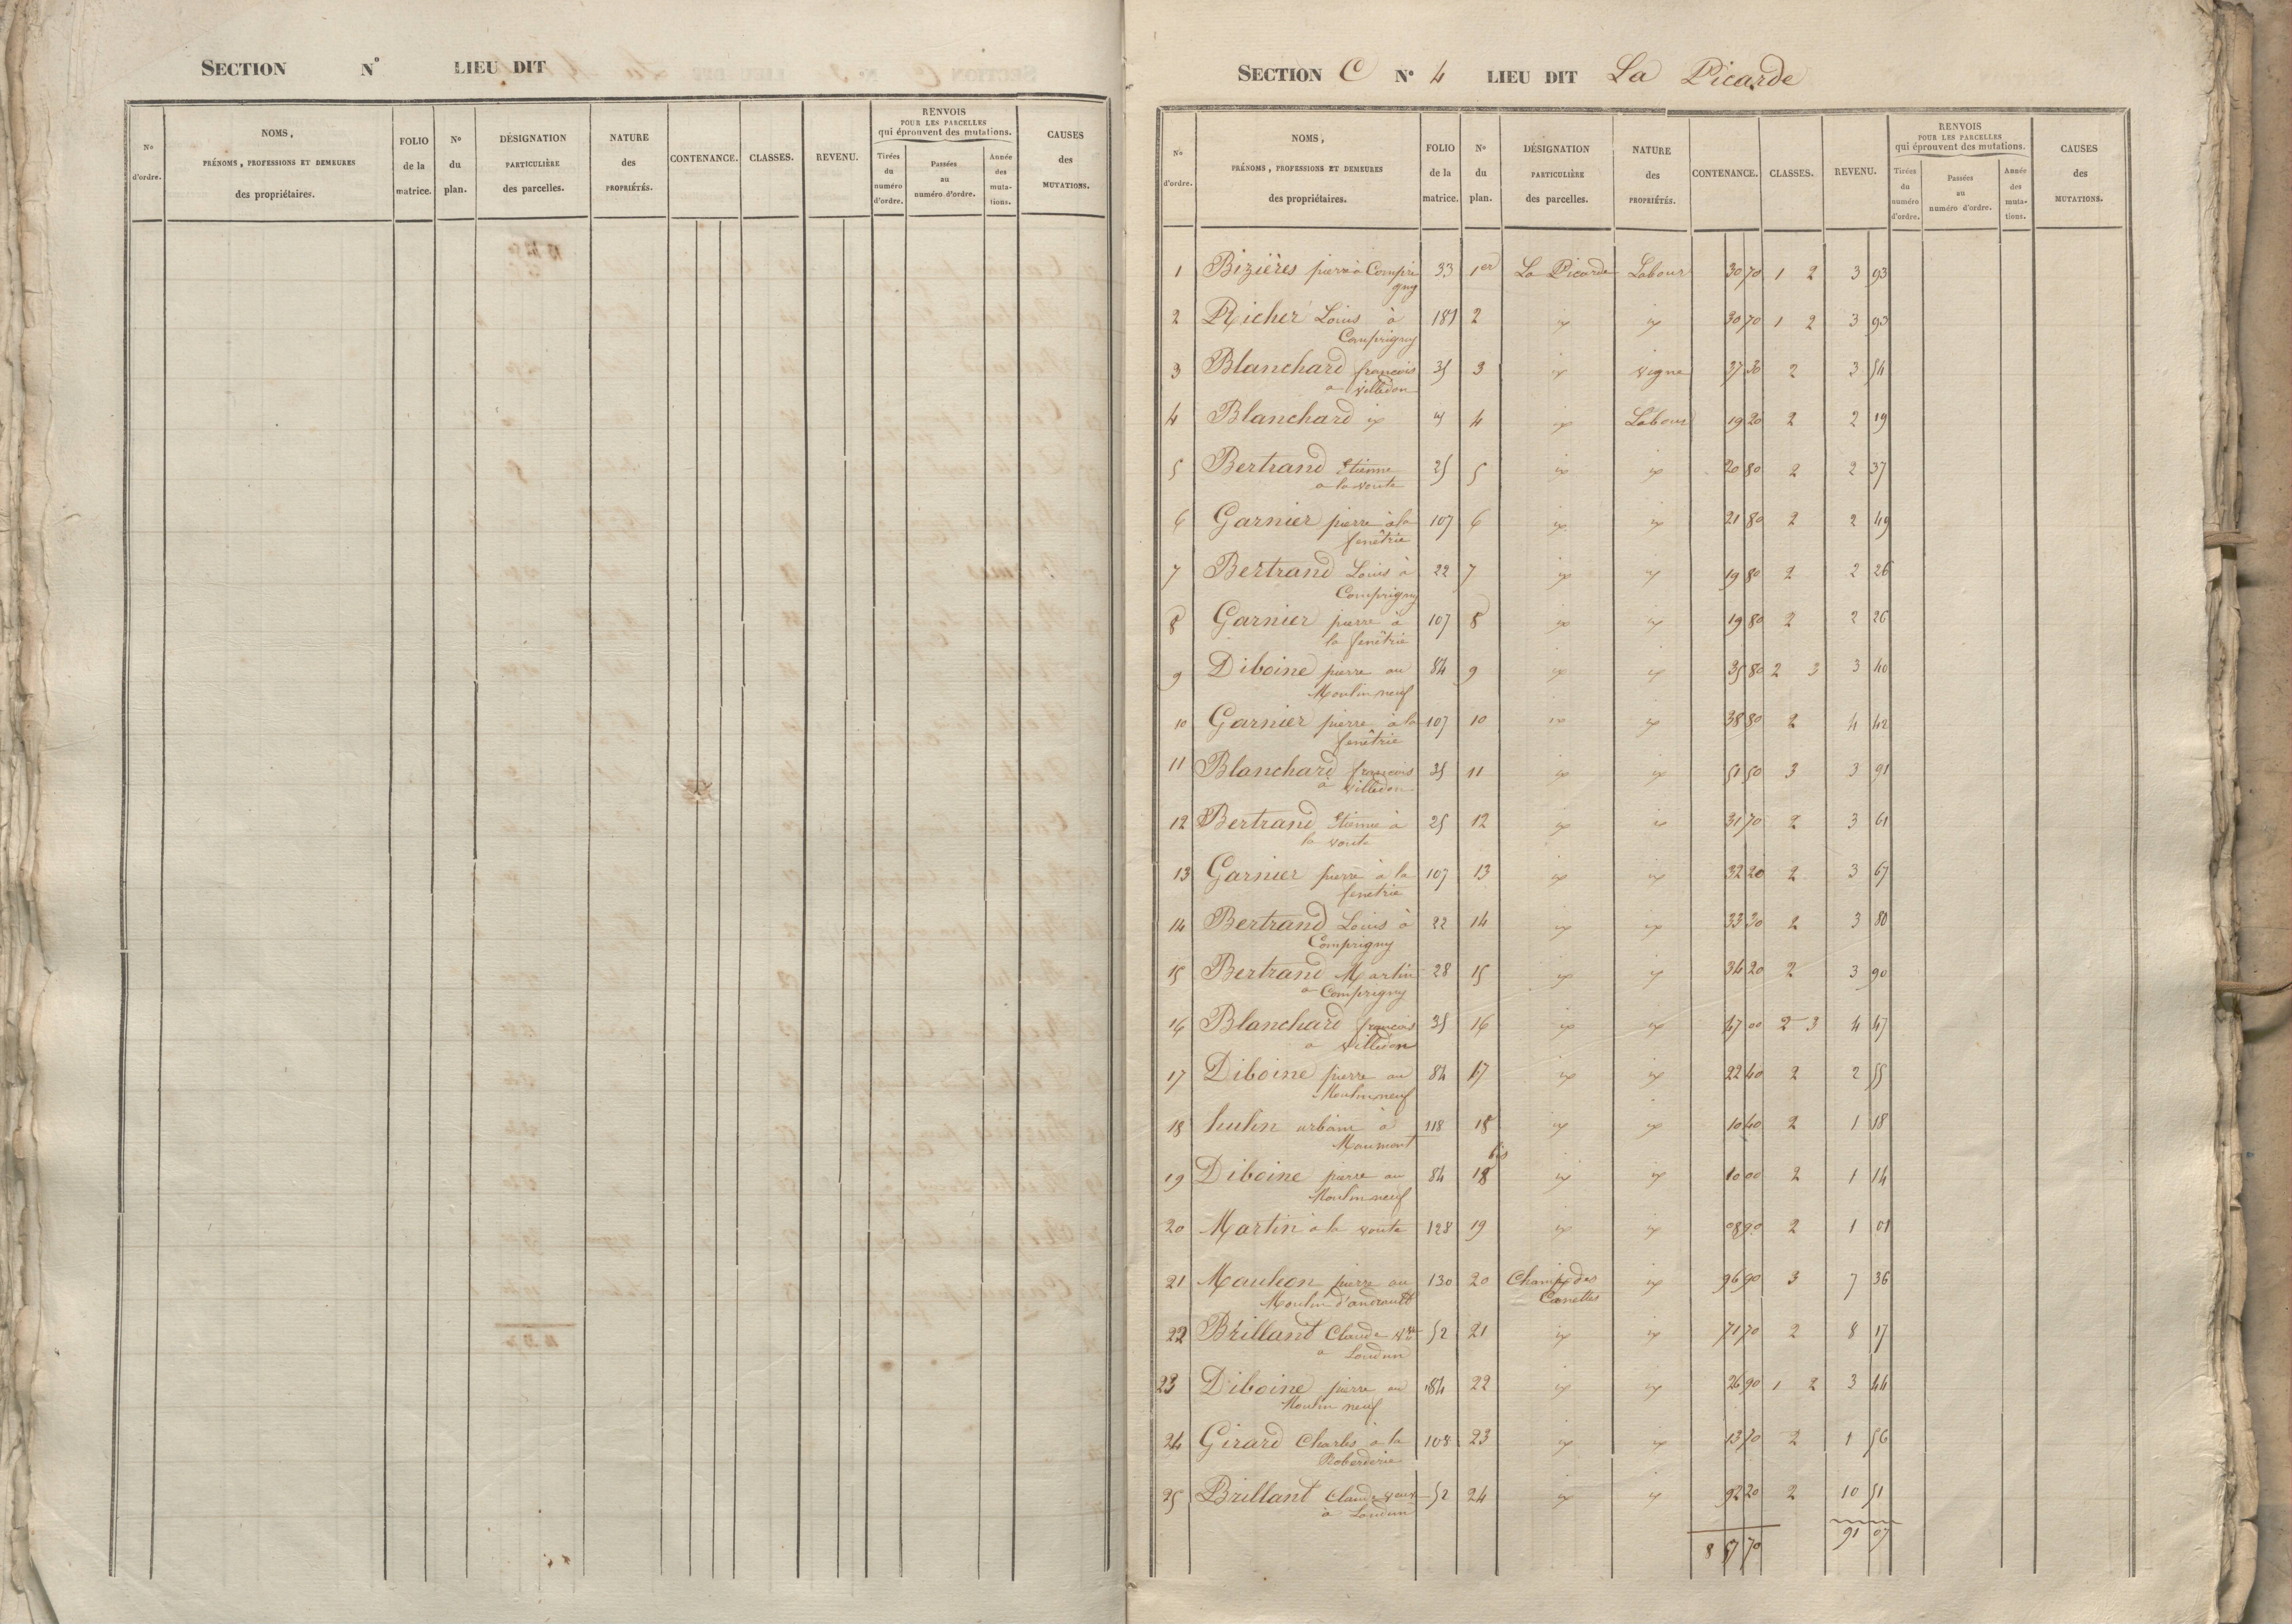 SECTION N° LIEU DIT
N° d'ordre.
NOMS, PRÉNOMS, PROFESSIONS ET DEMEURES des propriétaires.
FOLIO de la matrice.
N° du plan.
DÉSIGNATION PARTICULIÈRE des parcelles.
NATURE des PROPRIÉTÉS.
CONTENANCE.
CLASSES.
REVENU.
RENVOIS POUR LES PARCELLES qui éprouvent des mutations.
Tirées du numéro d'ordre.
Passées au numéro d'ordre.
Année des muta-tions.
CAUSES des MUTATIONS.
SECTION C N° 4 LIEU DIT La Picarde
N° d'ordre.
NOMS, PRÉNOMS, PROFESSIONS ET DEMEURES des propriétaires.
FOLIO de la matrice.
N° du plan.
DÉSIGNATION PARTICULIÈRE des parcelles.
NATURE des PROPRIÉTÉS.
CONTENANCE.
CLASSES.
REVENU.
RENVOIS POUR LES PARCELLES qui éprouvent des mutations.
Tirées du numéro d'ordre.
Passées au numéro d'ordre.
Année des muta-tions.
CAUSES des MUTATIONS.
1 Bizières pierre à Compri 33 1er La Picarde Labour 30 70 1 2 3 93
gny
2 Richer Louis à 181 2 30 70 1 2 3 93
Comprigny
3 Blanchard françois 35 3 vigne 37 30 2 3 54
a villedon
4 Blanchard 4 Labour 19 20 2 2 19
5 Bertrand Etienne 25 5 20 80 2 2 37
a la voute
6 Garnier pierre à la 107 6 21 80 2 2 49
fenêtrie
7 Bertrand Louis à 22 7 19 80 2 2 26
Comprigny
8 Garnier pierre à 107 8 19 80 2 2 26
la fenêtrie
9 Diboine pierre au 84 9 35 80 2 3 3 40
Moulin neuf
10 Garnier pierre à la 107 10 38 80 2 4 42
fenêtrie
11 Blanchard françois 35 11 51 50 3 3 91
à villedon
12 Bertrand Etienne à 25 12 31 70 2 3 61
la voute
13 Garnier pierre à la 107 13 32 20 2 3 67
fenetrie
14 Bertrand Louis à 22 14 33 30 2 3 80
Comprigny
15 Bertrand Martin 28 15 34 20 2 3 90
a Comprigny
16 Blanchard françois 35 16 47 00 2 3 4 47
a villedon
17 Diboine pierre au 84 17 22 40 2 2 55
Moulin neuf
18 hulin urbain à 118 18 10 40 2 1 18
Maumont
19 Diboine pierre au 84 18 bis 10 00 2 1 14
Moulin neuf
20 Martin a la voute 128 19 08 90 2 1 01
21 Mauleon pierre au 130 20 Champ des 96 90 3 7 36
Moulin d'andrault Canettes
22 Brillant Claude vve 52 21 71 70 2 8 17
a Loudun
23 Diboine pierre au 84 22 26 90 1 2 3 44
Moulin neuf
24 Girard Charles a la 108 23 13 70 2 1 56
Roberderie
25 Brillant Claude 52 24 92 20 2 10 51
à Loudun
8 57 70 91 07